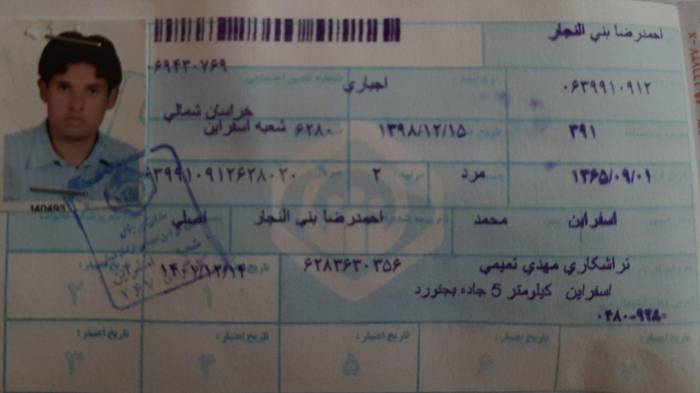 احمدرضا بني النجار
۰۶۹۴۳۰۷۶۹
۰۶۳۹۹۱۰۹۱۲ اجباري
خراسان شمالي
۳۹۱ ۱۳۹۸/۱۲/۱۵ ۶۲۸۰ شعبه اسفراين
۱۳۶۵/۰۹/۰۱ مرد ۲ ۶۳۹۹۱۰۹۱۲۶۲۸۰۲۰
اسفراين محمد احمدرضا بني النجار اصلي
تراشكاري مهدي تميمي ۶۲۸۳۶۳۰۳۵۶
اسفراين كيلومتر 5 جاده بجنورد
۰۴۸۰-۹۲۸۰
تاریخ اعتبار: ۱ تاریخ اعتبار: ۲
تاریخ اعتبار: ۶ تاریخ اعتبار: ۵ تاریخ اعتبار: ۴ تاریخ اعتبار: ۳